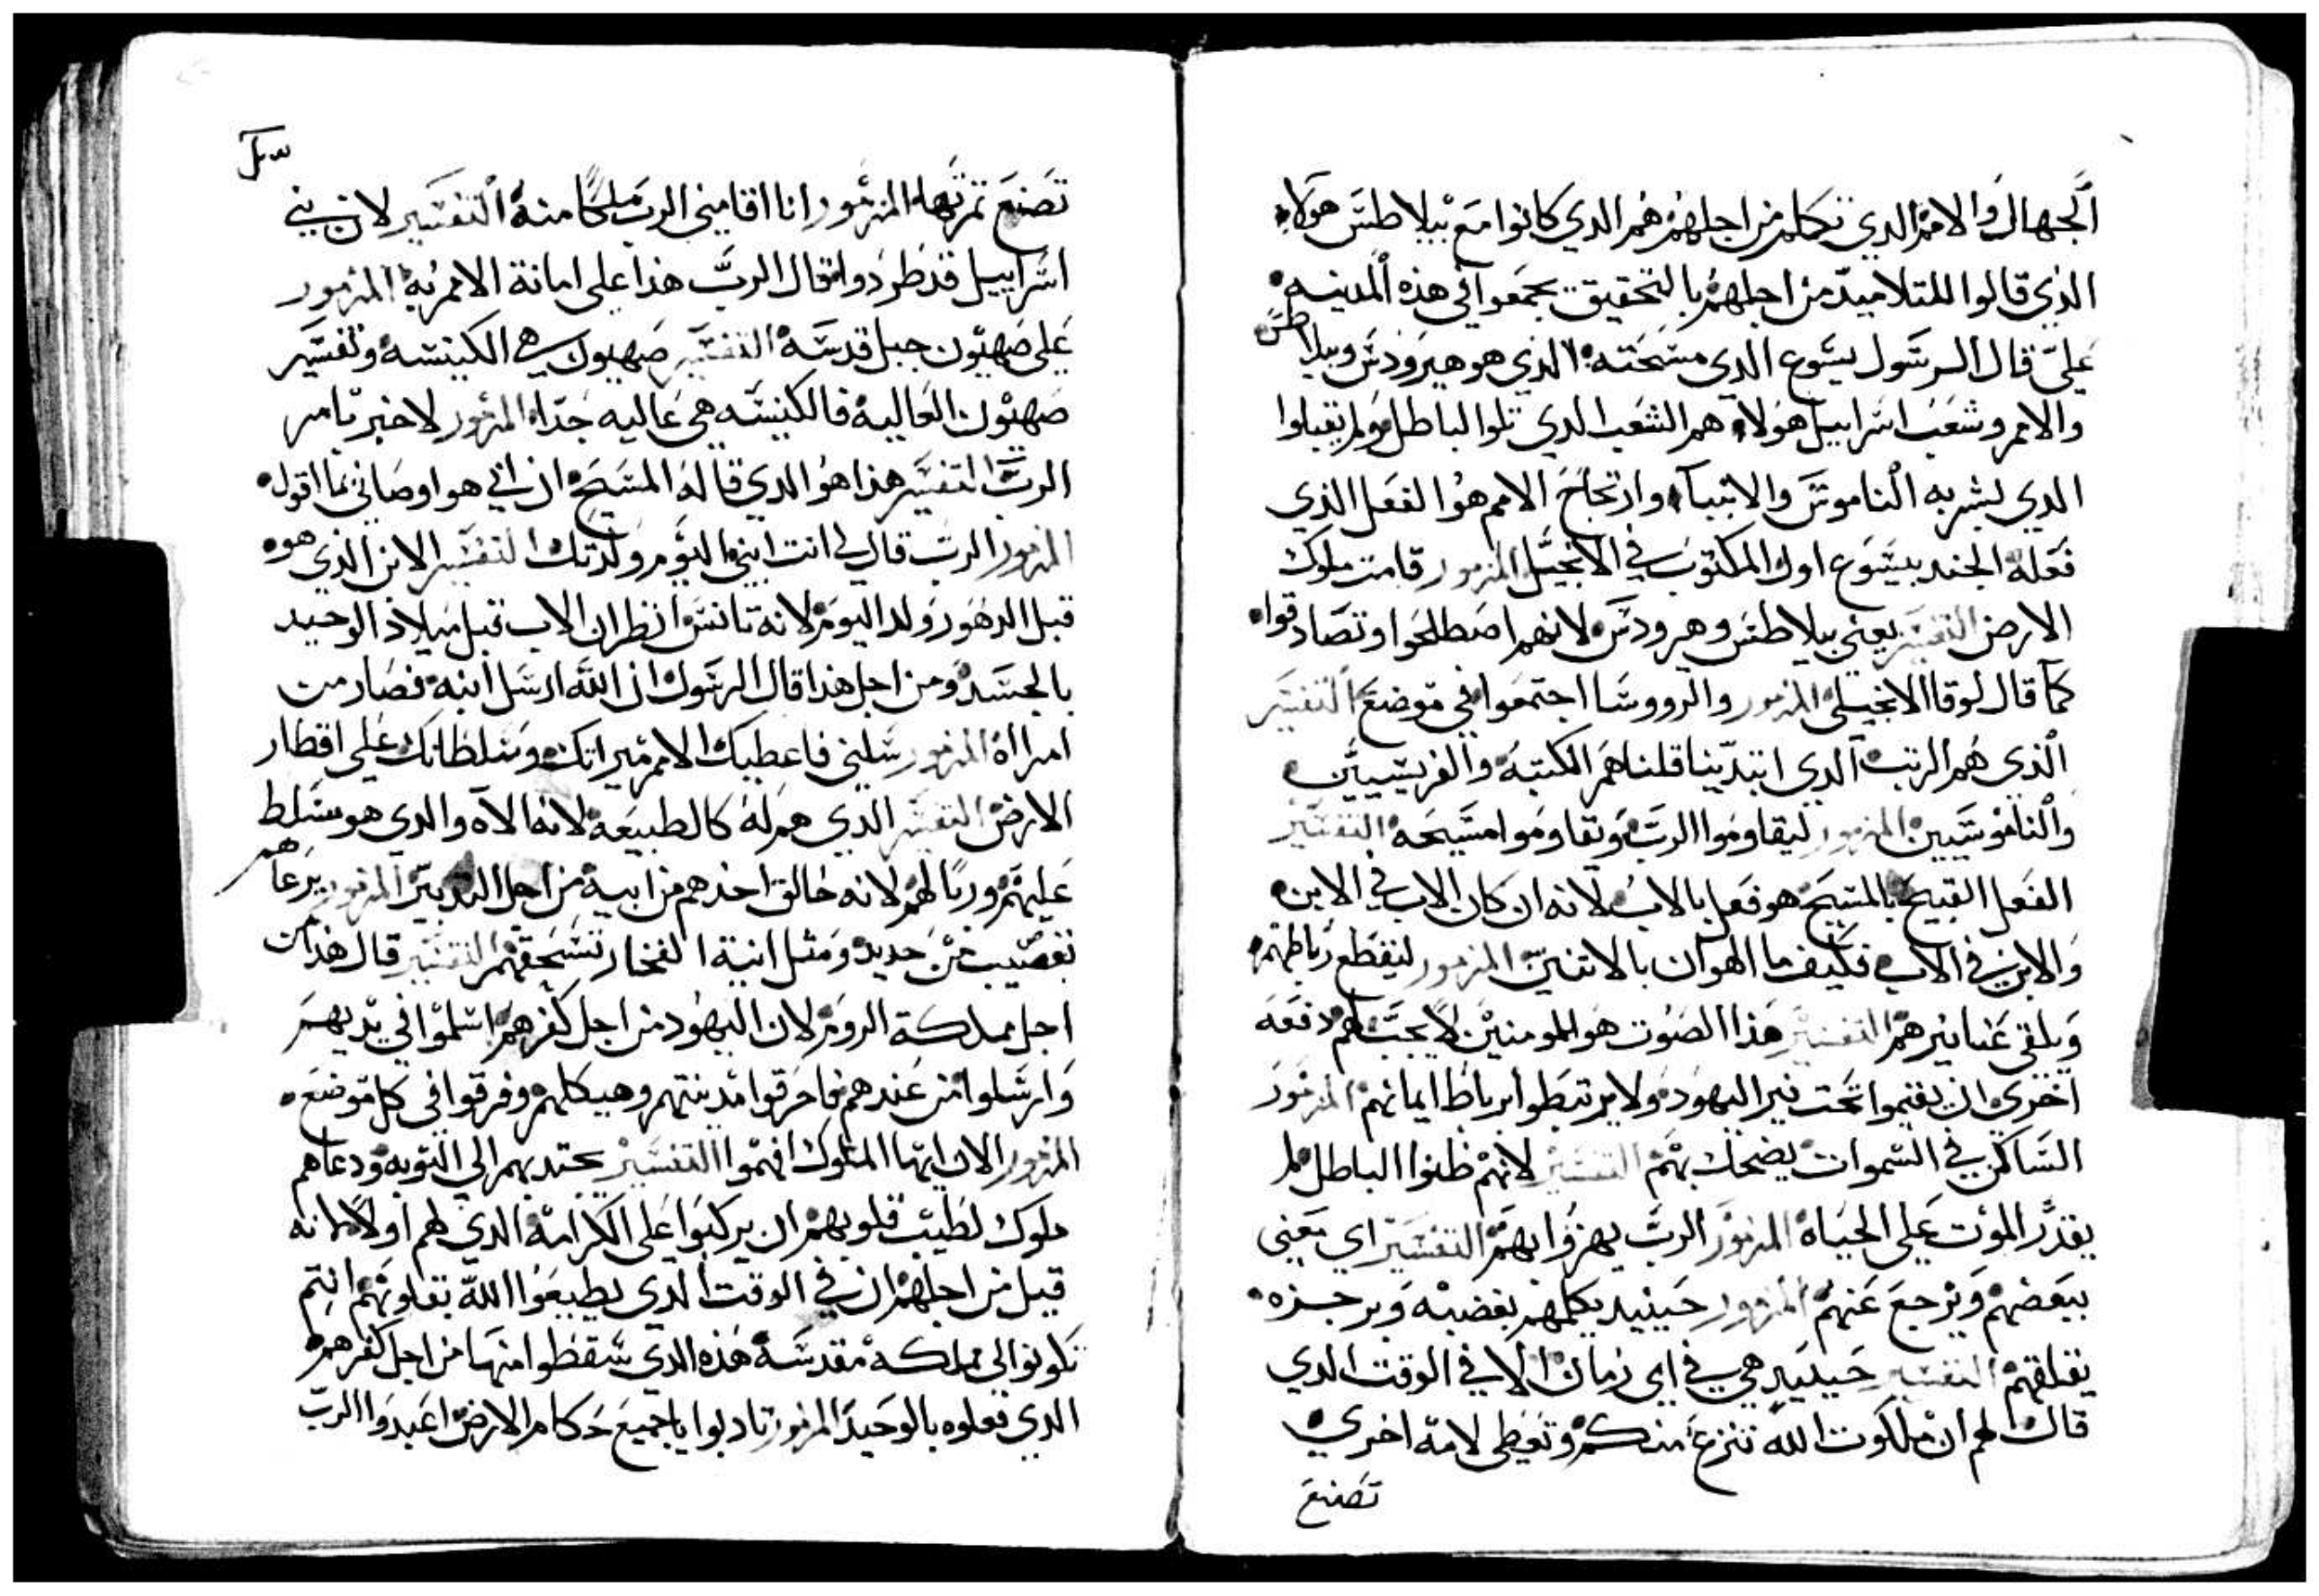 الجهال والامم الدي تكلم من اجلهم هم الدي كانوا مع بيلاطس هولاء
الذي قالوا للتلاميد من اجلهم بالتحقيق تجمعوا في هذه المدينه
علي قال الرسول يسوع الدي مسحته الذي هو هيرودس وبيلاطس
والامم وشعب اسراييل هولاء هم الشعب الدي تلوا الباطل ولم يقبلوا
الدي بشر به الناموس والانبياء وارتجاج الامم هوا الفعل الذي
فعله الجند بيسوع اول المكتوب في الانجيل المزمور قامت ملوك
الارض التفسير يعني بيلاطس وهرودس لانهم اصطلحوا وتصادقوا
كما قال لوقا الانجيلي المزمور والرووسا اجتمعوا في موضع التفسير
الذي هم الرتب الدي ابتدينا قلنا هم الكتبه والفريسيين
والناموسيين المزمور ليقاوموا الرب ويقاوموا مسيحه التفسير
الفعل القبيح بالمسيح هو فعل بالاب لانه ان كان الاب في الابن
والابن في الاب فكيف ما الهوان بالاتنين المزمور ليقطع رباطهم
ويلقي عنا نيرهم التفسير هذا الصوت هو للمومنين لا يجب لهم دفعه
اخري ان يقيموا تحت نير اليهود ولا يرتبطوا برباط ايمانهم المزمور
الساكن في السموات يضحك بهم التفسير لانهم ظنوا الباطل لم
يقدر الموت علي الحياه المزمور الرب يهزوا بهم التفسير اي معني
يبغضهم ويرجع عنهم المزمور حينيد يكلمهم بغضبه وبرجزه
يقلقهم التفسير حينيد هي في اي زمان الا في الوقت الدي
قال لهم ان ملكوت الله تنزع منكم وتعطي لامه اخري
تصنع
تصنع تمرتها المزمور انا اقامني الرب ملكا منه التفسير لان بني
اسراييل قد طردوا قال الرب هذا علي امانة الامم به المزمور
علي صهيون جبل قدسه التفسير صهيون هي الكنيسه وتفسير
صهيون العاليه فالكنيسه هي عاليه جدا المزمور لاخبر بامر
الرب التفسير هذا هو الدي قاله المسيح ان ابي هو اوصاني بما اقول
المزمور الرب قال لي انت ابني اليوم ولدتك التفسير الابن الذي هو
قبل الدهور ولد اليوم لانه تانس انظر ان الاب قبل ميلاد الوحيد
بالجسد ومن اجل هذا قال الرسول ان الله ارسل ابنه فصار من
امراه المزمور سلني فاعطيك الامم ميراتك وسلطانك علي اقطار
الارض التفسير الدي هم له كالطبيعه لانه الاه والدي هو سلط
عليهم وربا لهم لانه خالق اخدهم من ابيه من اجل التدبير المزمور يرعاهم
بقضيب من حديد ومثل انية الفخار تسحقهم التفسير قال هذا من
اجل مملكة الروم لان اليهود من اجل كفرهم اسلموا في يديهم
وارسلوا من عندهم فاحرقوا مدينتهم وهيكلهم وفرقوا في كل موضع
المزمور الان ايها الملوك افهموا التفسير يجتدبهم الي التوبه ودعاهم
ملوك لطيب قلوبهم ان يركبوا علي الكرامه الدي لهم اولا لانه
قيل من اجلهم ان في الوقت الدي يطيعوا الله بقلوبهم انتم
تكونوا لي مملكه مقدسه هذه الدي سقطوا منها من اجل كفرهم
الدي فعلوه بالوحيد المزمور تادبوا يا جميع حكام الارض اعبدوا الرب